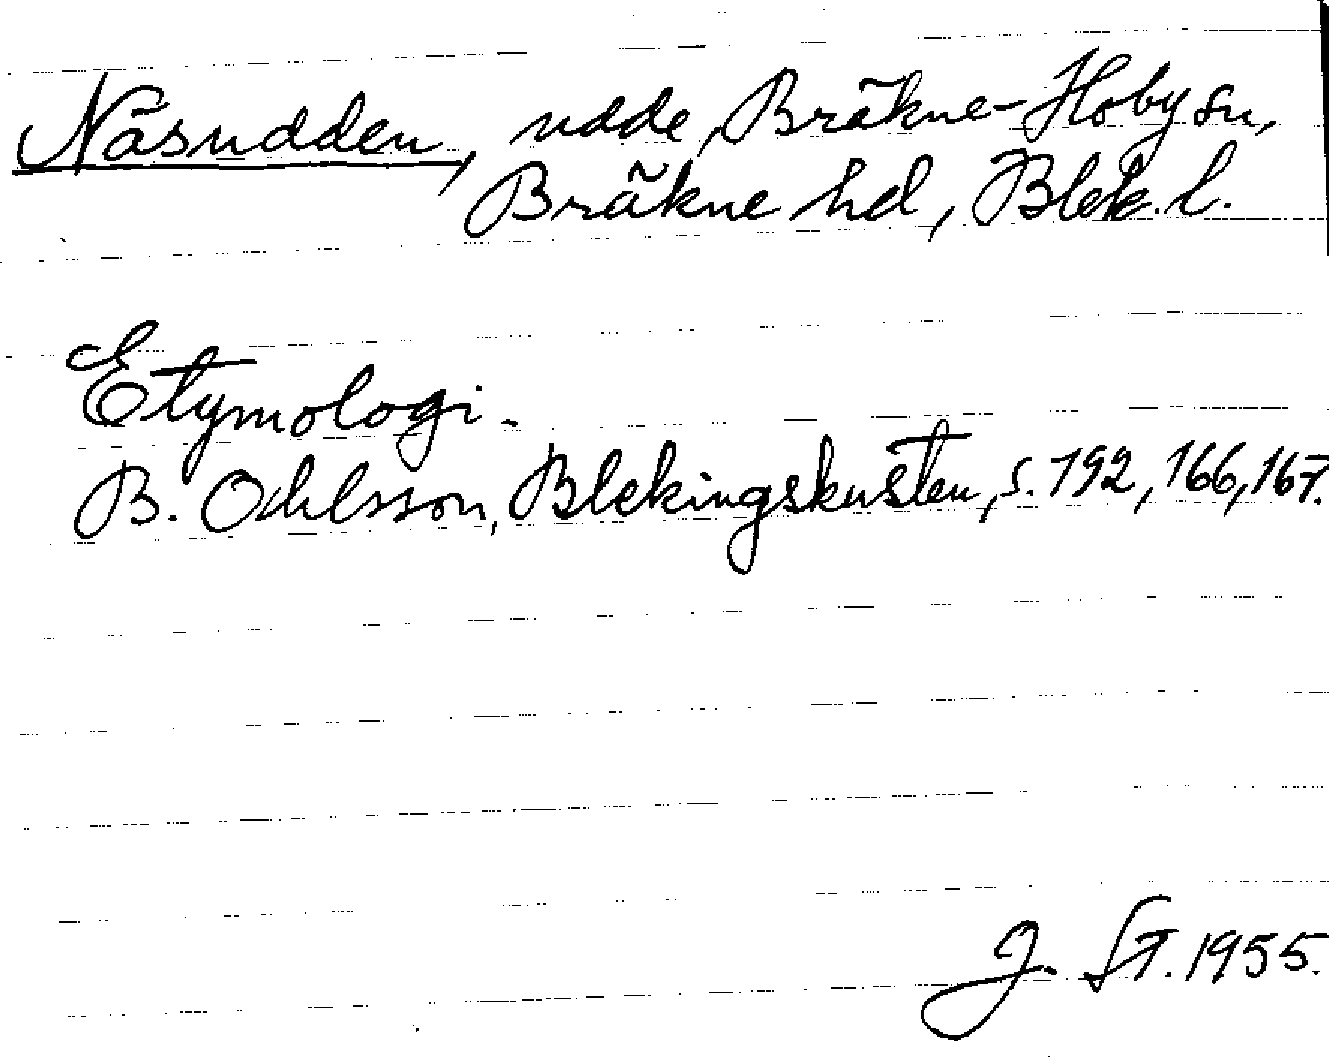 Näsudden, udde, Bräkne-Hoby sn,
Bräkne hd, Blek. l.
Etymologi.
B. Ohlsson, Blekingskusten, s. 192, 166, 167.
J. St. 1955.